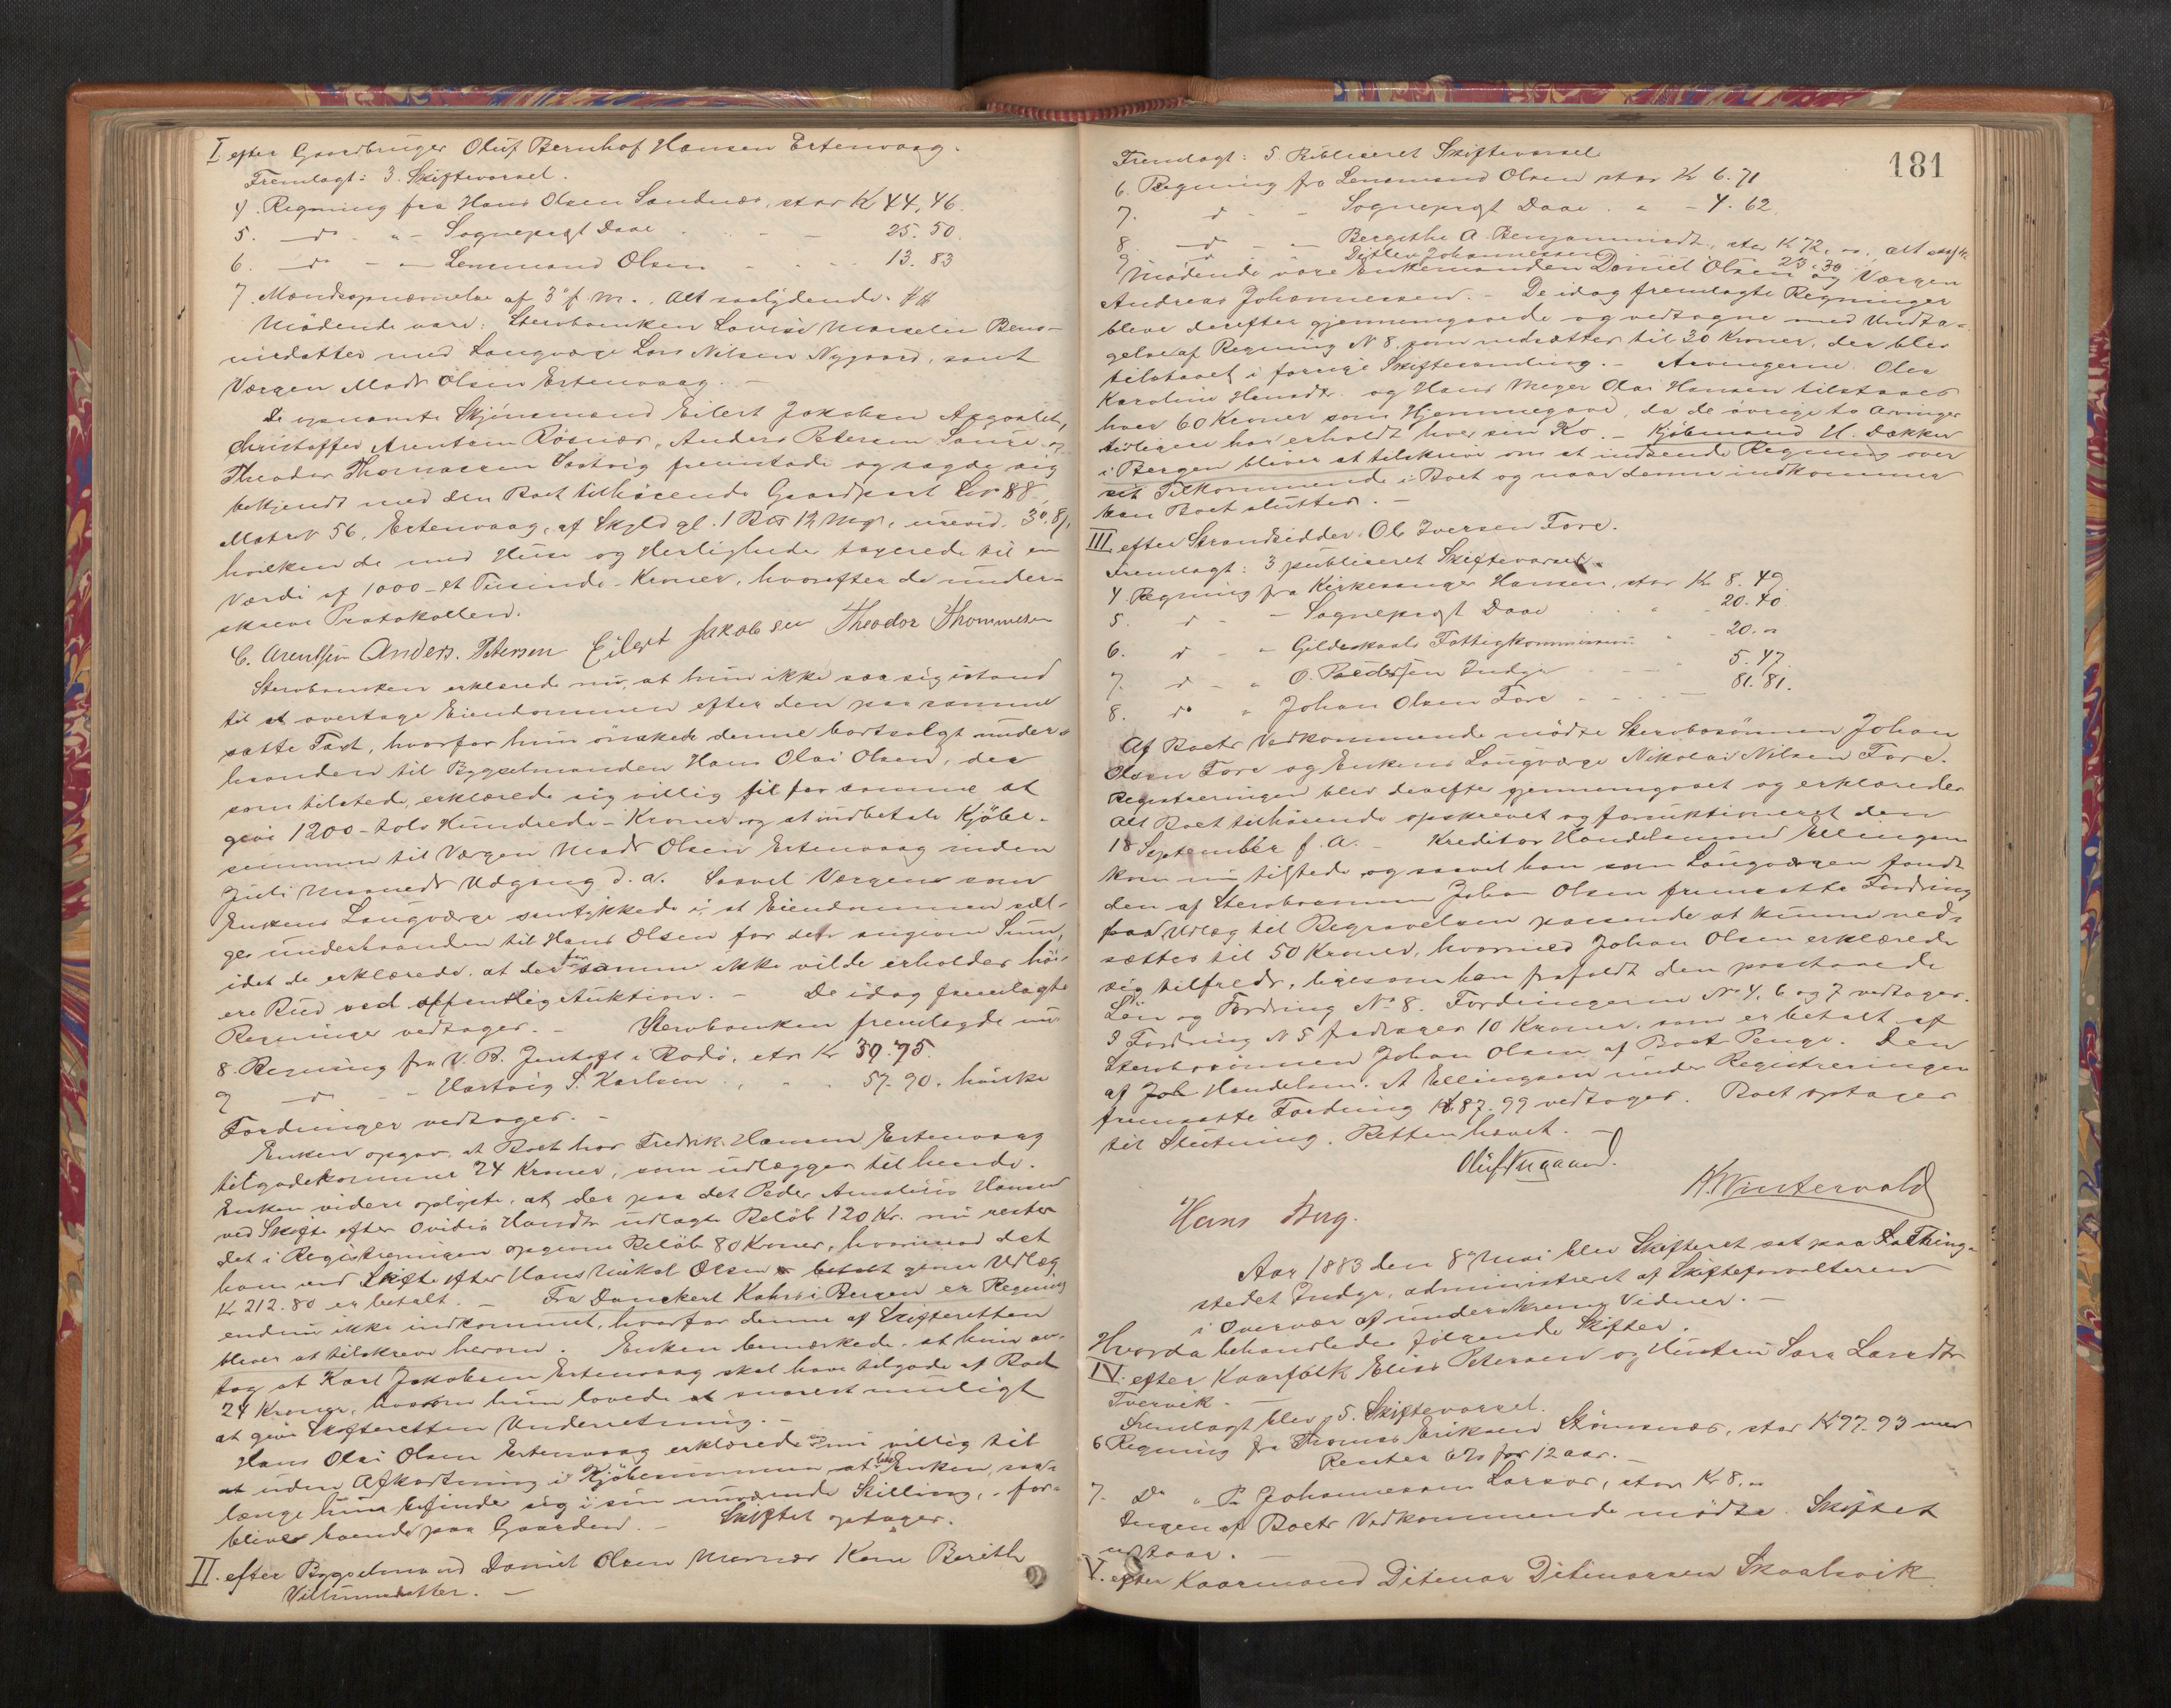 I efter Gaardbruger Oluf Bernhof Hansen Ertenvaag.
Fremlagt: 3. Skiftevarsel.
4. Regning fra Hans Olsen Sandnæs, stor Kr 44,46.
5. — do - " - Sognepræst Daae - - 25.50.
6. — do - — Lensmand Olsen - - - 13.83
7. Mandsopnævnelse af 3 f. M. Alt saalydende
Mødende vare: Stervboenken Lovise Marselie Beno-
nisdatter med Laugværge Lars Nilsen Nygaard, samt
Værgen Mads Olsen Ertenvaag. —
De opnævnte Skjønsmænd Eilert Jakobsen
Christoffer Arentsen Røsnæs, Anders Petersen Saure og
Theodor Thomassen fremstode og sagde sig
bekjendt med den Boet tilhørende Gaardpart Løb 88
Matr N 56, Ertenvaag, af Skyld gl. 1 12 Mrk, urevid.
hvilken de med Huse og Herligheder taxerede til en
Værdi af 1000 - et Tusinde - Kroner, hvorefter de under-
skreve Protokollen.
C. Arentsen Anders. Petersen Eilert Jakobsen Theodor Thommesen
Stervboenken erklærede nu, at hun ikke saa sig istand
til at overtage Eiendommen efter den paa samme
satte Taxt, hvorfor hun ønskede denne bortsolgt under-
haanden til Bygselmanden Hans Olai Olsen, der
som tilstede, erklærede sig villig til for samme at
give 1200 - tolv Hundrede - Kroner og at indbetale Kjøbe-
summen til Værgen Mads Olsen Ertenvaag inden
Juli Maaneds Udgang d. A. Saavel Værgen som
Enkens Laugværge samtykkede i, at Eiendommen sæl-
ges underhaanden til Hans Olsen for den angivne Sum,
idet de erklærede, at der for samme ikke vilde erholdes høi-
ere Bud ved offentlig Auktion. — De idag fremlagte
Regninger vedtages. — Stervboenken fremlagde nu
8. Regning fra V. B. Jentoft i Rødø, stor Kr 39.75.
9 — do - - Hartvig S. Karlsen - - 57.90. hvilke
Fordringer vedtages. —
Enken opgav, at Boet hos Fredrik Hansen Ertenvaag
tilgodekommer 24 Kroner, som udlægges til hende.
Enken videre oplyste, at der paa det Peder Amatius Hansen
ved Skifte efter Ovidia Hansdr udlagte Beløb 120 Kr. nu rester
det i Registreringen opgivne Beløb 80 Kroner, hvorimod det
ham ved Skifte efter Hans Mikal Olsen betalt givne Udlæg
Kr 212.80 er betalt. — Fra Danckert Kahrs i Bergen er Regning
endnu ikke indkommet, hvorfor denne af Skifteretten
bliver at tilskrive herom. Enken bemærkede, at hun an-
tog at Karl Jakobsen Ertenvaag skal have tilgode af Boet
24 Kroner, hvorom hun lovede at snarest muligt
at give Skifteretten Underretning. —
Hans Olai Olsen Ertenvaag erklærede sig nu villig til
at uden Afkortning i Kjøbesummen at lade Enken, saa-
længe hun befinder sig i sin nuværende Stilling, for-
blive boende paa Gaarden. — Skiftet optages.
II. efter Bygselmand Daniel Olsen Kone Berith
Villumsdatter. —
181
Fremlagt: 5. Publiceret Skiftevarsel
6. Regning fra Lensmand Olsen stor Kr 6.71
7. d - - Sognepræst Daae. " - 4.62.
8. — d — - — Bergithe A. Benjaminsdr, stor K 72. " alt
9 Ditlev Johannessen 25.30
Mødende vare Enkemanden Daniel Olsen og Værgen
Andreas Johannessen. — De idag fremlagte Regninger
bleve derefter gjennemgaaede og vedtagne med Undta-
gelse af Regning N 8, som nedsættes til 30 Kroner, der blev
tilstaaet i forrige Skiftesamling. — Arvingerne Olea
Karoline Hansdr. og Hans Meyer Olai Hansen tilstaaes
hver 60 Kroner som Hjemmegave, da de øvrige to Arvinger
tidligere har erholdt hver sin Ko. — Kjøbmand H. Dækker
i Bergen bliver at tilskrive om at indsende Regning over
sit Tilkommende i Boet og naar denne indkommer
kan Boet sluttes. —
III efter Strandsidder Ole Iversen Fore.
Fremlagt: 3 publiceret Skiftevarsel.
4 Regning fra Kirkesanger Hansen, stor Kr 8.49.
5. d - - Sognepræst Daae - - 20.40
6. d - - Gildeskaals Fattigkommission - - 20. "
7. d - " O. Pedersen Indyr - - 5.47.
8. do " Johan Olsen Fore - - - 81.81.
Af Boets Vedkommende mødte Stervbosønnen Johan
Olsen Fore og Enkens Laugværge Nikolai Nilsen Fore.
Registreringen blev derefter gjennemgaaet og erklæredes
alt Boet tilhørende opskrevet og forauktioneret den
18 September f. A. — Kreditor Handelsmand Ellingsen
kom nu tilstede og saavel han som Laugværgen fandt
den af Stervbosønnen Johan Olsen fremsatte Fordring
paa Udlæg til Begravelsen passende at kunne ned-
sættes til 50 Kroner, hvormed Johan Olsen erklærede
sig tilfreds, ligesom han frafaldt den paastaaede
Løn og Fordring No 8. Fordringerne No 4, 6 og 7 vedtages.
I Fordring N 5 fradrages 10 Kroner, som er betalt af
Stervbosønnen Johan Olsen af Boets Penge. Den
af Joh Handelsm. A Ellingsen under Registreringen
fremsatte Fordring Kr 87.99 vedtages. Boet optages
til Slutning. Retten hævet. —
Oluf Nygaard.
A. Wintervold
Hans Berg.
Aar 1883 den 8de Mai blev Skifteret sat paa Thing-
stedet Indyr, administreret af Skifteforvalteren
i Overvær af underskrevne Vidner. —
Hvorda behandledes følgende Skifter.
IV. efter Kaarfolk Elias Petersen og Hustru Sara Larsdtr
Tvervik. —
Fremlagt blev 5. Skiftevarsel.
6 Regning fra Thomas Eriksen Stømsnæs, stor Kr 97.93 med
Renter o/o for 12 aar. —
7. Do " P. Johannessen Larsos, stor Kr 8. "
Ingen af Boets Vedkommende mødte. Skiftet
udstaar. —
V. efter Kaarmand Ditmar Ditmarsen Skaalsvik